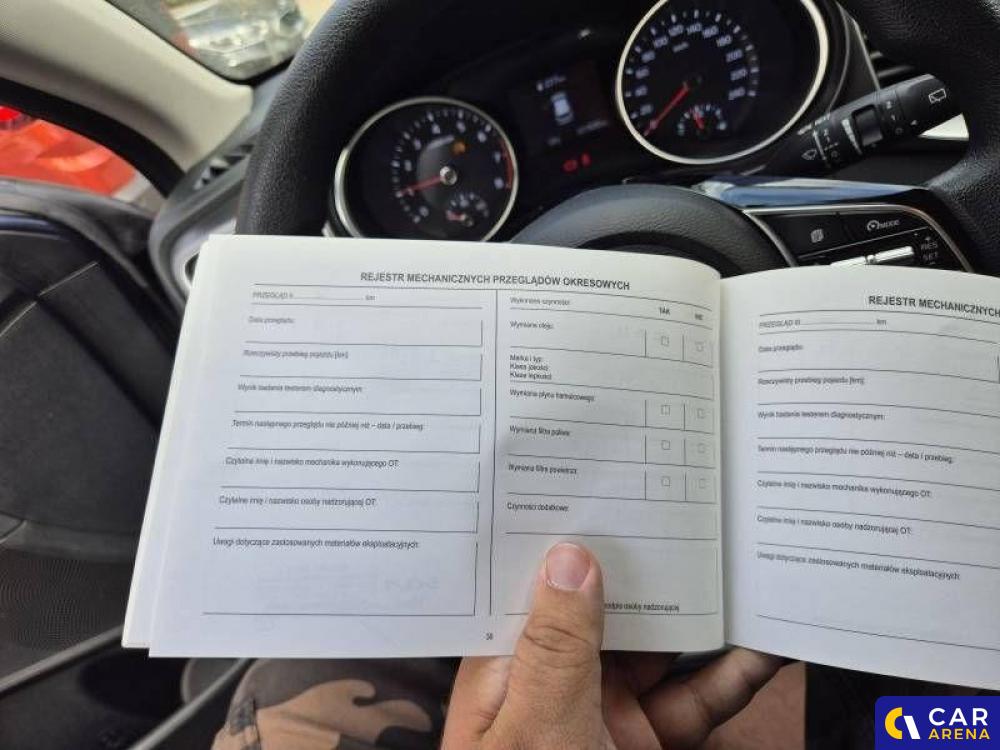 REJESTR MECHANICZNYCH PRZEGLĄDÓW OKRESOWYCH
PRZEGLĄD II km
Data przeglądu:
Rzeczywisty przebieg pojazdu [km]:
Wynik badania testerem diagnostycznym:
Termin następnego przeglądu nie później niż – data / przebieg:
Czytelne imię i nazwisko mechanika wykonującego OT:
Czytelne imię i nazwisko osoby nadzorującej OT:
Uwagi dotyczące zastosowanych materiałów eksploatacyjnych:
Wykonane czynności: TAK NIE
Wymiana oleju:
Marka i typ:
Klasa jakości:
Klasa lepkości:
Wymiana płynu hamulcowego:
Wymiana filtra paliwa:
Wymiana filtra powietrza:
Czynności dodatkowe:
podpis osoby nadzorującej
REJESTR MECHANICZNYCH
PRZEGLĄD III km
Data przeglądu:
Rzeczywisty przebieg pojazdu [km]:
Wynik badania testerem diagnostycznym:
Termin następnego przeglądu nie później niż – data / przebieg:
Czytelne imię i nazwisko mechanika wykonującego OT:
Czytelne imię i nazwisko osoby nadzorującej OT:
Uwagi dotyczące zastosowanych materiałów eksploatacyjnych:
MODE
RES
SET
CAR
ARENA